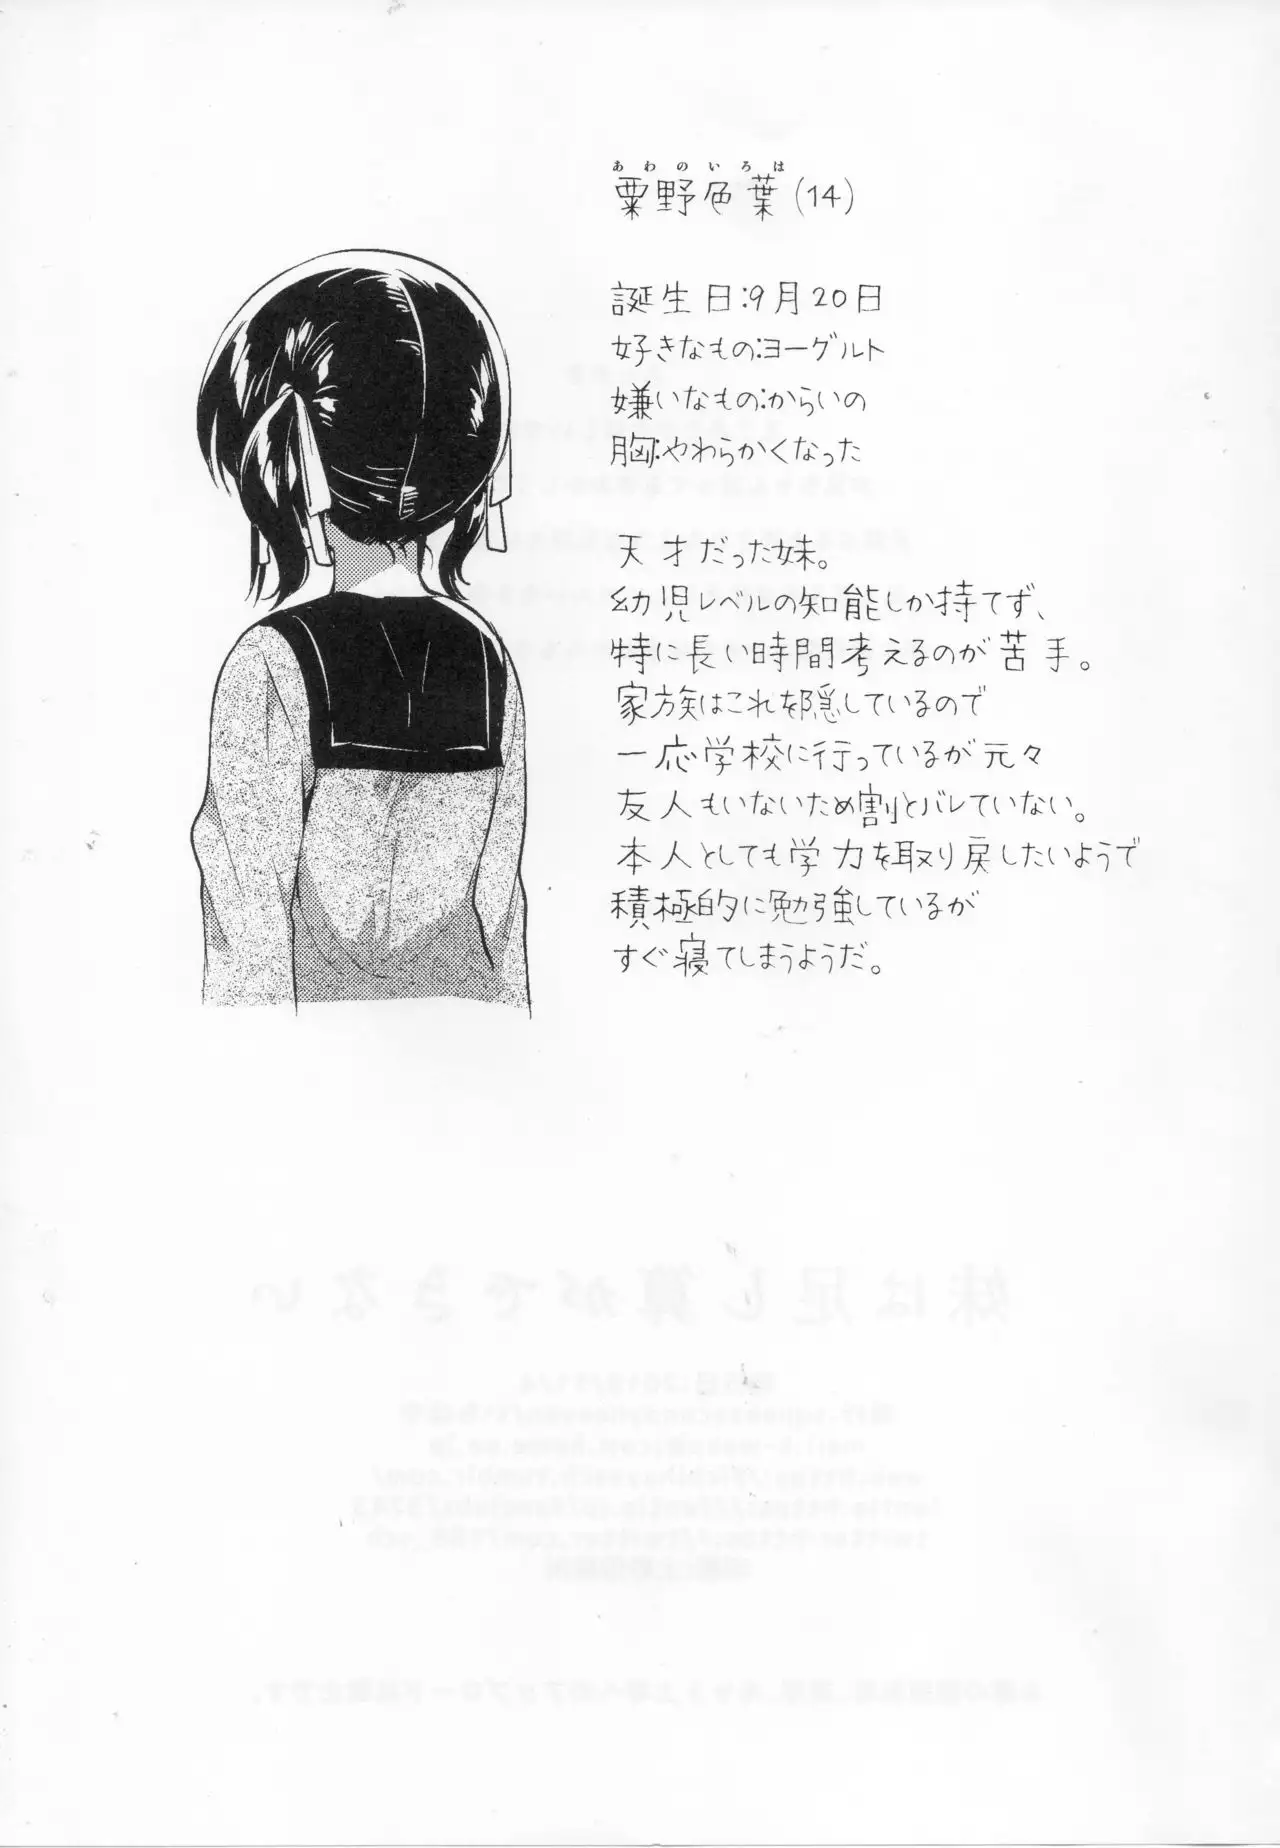 あわのいろは
粟野色葉(14)
誕生日:9月20日
好きなもの:ヨーグルト
嫌いなもの:からいの
天才だった妹。
幼児レベルの知能しか持てず、
特に長い時間考えるのが苦手。
家族はこれを隠しているので
一応学校に行っているが元々
友人もいないため割とバレていない。
本人としても学力を取り戻したいようで
積極的に勉強しているが
すぐ寝てしまうようだ。